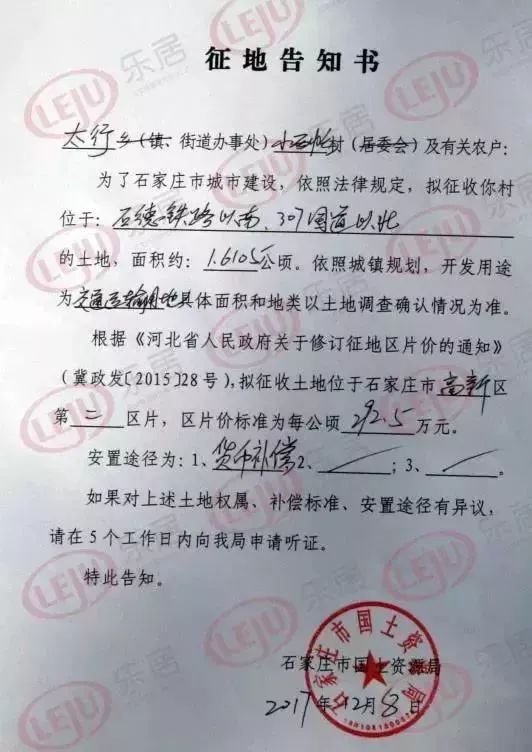 征地告知书
太行乡(镇、街道办事处)小石帐村(居委会)及有关农户:
为了石家庄市城市建设,依照法律规定,拟征收你村
位于: 石德铁路以南、307国道以北
的土地,面积约: 1.6105公顷。依照城镇规划,开发用途
为交通运输用地具体面积和地类以土地调查确认情况为准。
根据《河北省人民政府关于修订征地区片价的通知》
(冀政发〔2015〕28号),拟征收土地位于石家庄市高新区
第二区片,区片价标准为每公顷292.5万元。
安置途径为:1、货币补偿2、 ;3、 。
如果对上述土地权属、补偿标准、安置途径有异议,
请在5个工作日内向我局申请听证。
特此告知。
石家庄市国土资源局
2017年12月8日
石家庄市国土资源局
LEJU 乐居